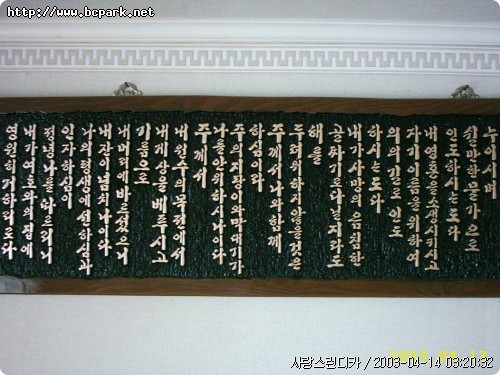 http://www.bcpark.net
누이시며
쉴만한 물가으로
인도하시는도다
내 영혼을 소생시키시고
자기 이름을 위하여
의의 길로 인도
하시는도다
내가 사망의 음침한
골짜기로 다닐지라도
해를
두려워하지 않을 것은
주께서 나와 함께
하심이라
주의 지팡이와 막대기가
나를 안위하시나이다
주께서
내 원수의 목전에서
내게 상을 베푸시고
기름으로
내 머리에 바르셨으니
내 잔이 넘치나이다
나의 평생에 선하심과
인자하심이
정녕 나를 따르리니
내가 여호와의 집에
영원히 거하리로다
사랑스런디카 / 2003-04-14 03:20:32